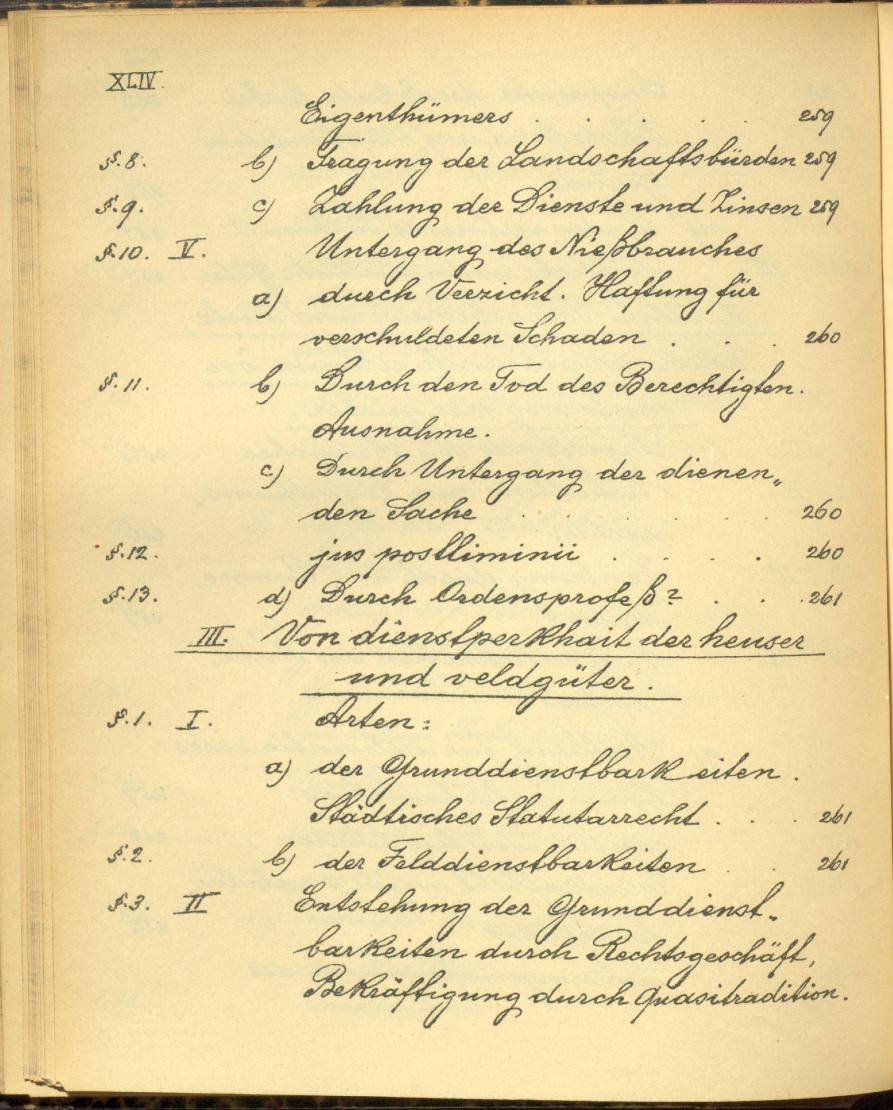 XLIV.
Eigenthümers . . . . . 259
§. 8. b) Tragung der Landschaftsbürden 259
§. 9. c) Zahlung der Dienste und Zinsen 259
§. 10. V. Untergang des Nießbrauches
a) durch Verzicht. Haftung für
verschuldeten Schaden . . . 260
§. 11. b) Durch den Tod des Berechtigten.
Ausnahme.
c) Durch Untergang der dienen„
den Sache . . . . . . 260
§. 12. jus postliminii . . . . 260
§. 13. d) Durch Ordensprofeß? . . . 261
III. Von dienstperkhait der heuser
und veldgüter.
§. 1. I. Arten:
a) der Grunddienstbarkeiten.
Städtisches Statutarrecht . . . 261
§. 2. b) der Felddienstbarkeiten . . 261
§. 3. II Entstehung der Grunddienst-
barkeiten durch Rechtsgeschäft,
Bekräftigung durch Quasitradition.